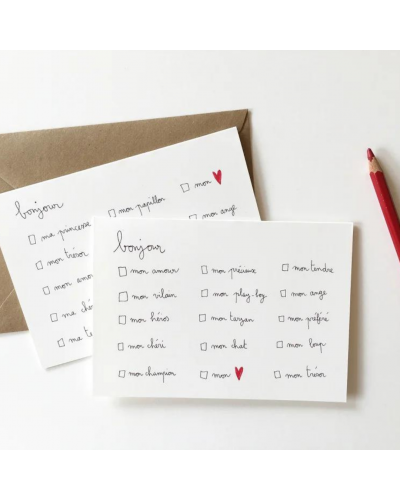 bonjour
mon ♥
mon papillon
ma princesse
mon ange
mon trésor
mon amou
ma ché
ma te
bonjour
mon amour
mon précieux
mon tendre
mon vilain
mon play-boy
mon ange
mon héros
mon tarzan
mon préféré
mon chéri
mon chat
mon loup
mon champion
mon ♥
mon trésor